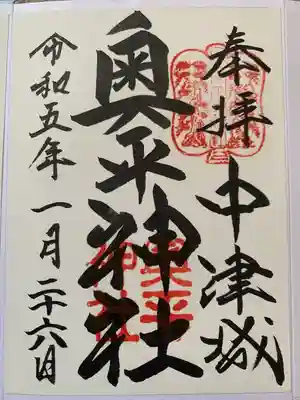 奉拝 中津城
奥平神社
令和五年 一月 二十六日